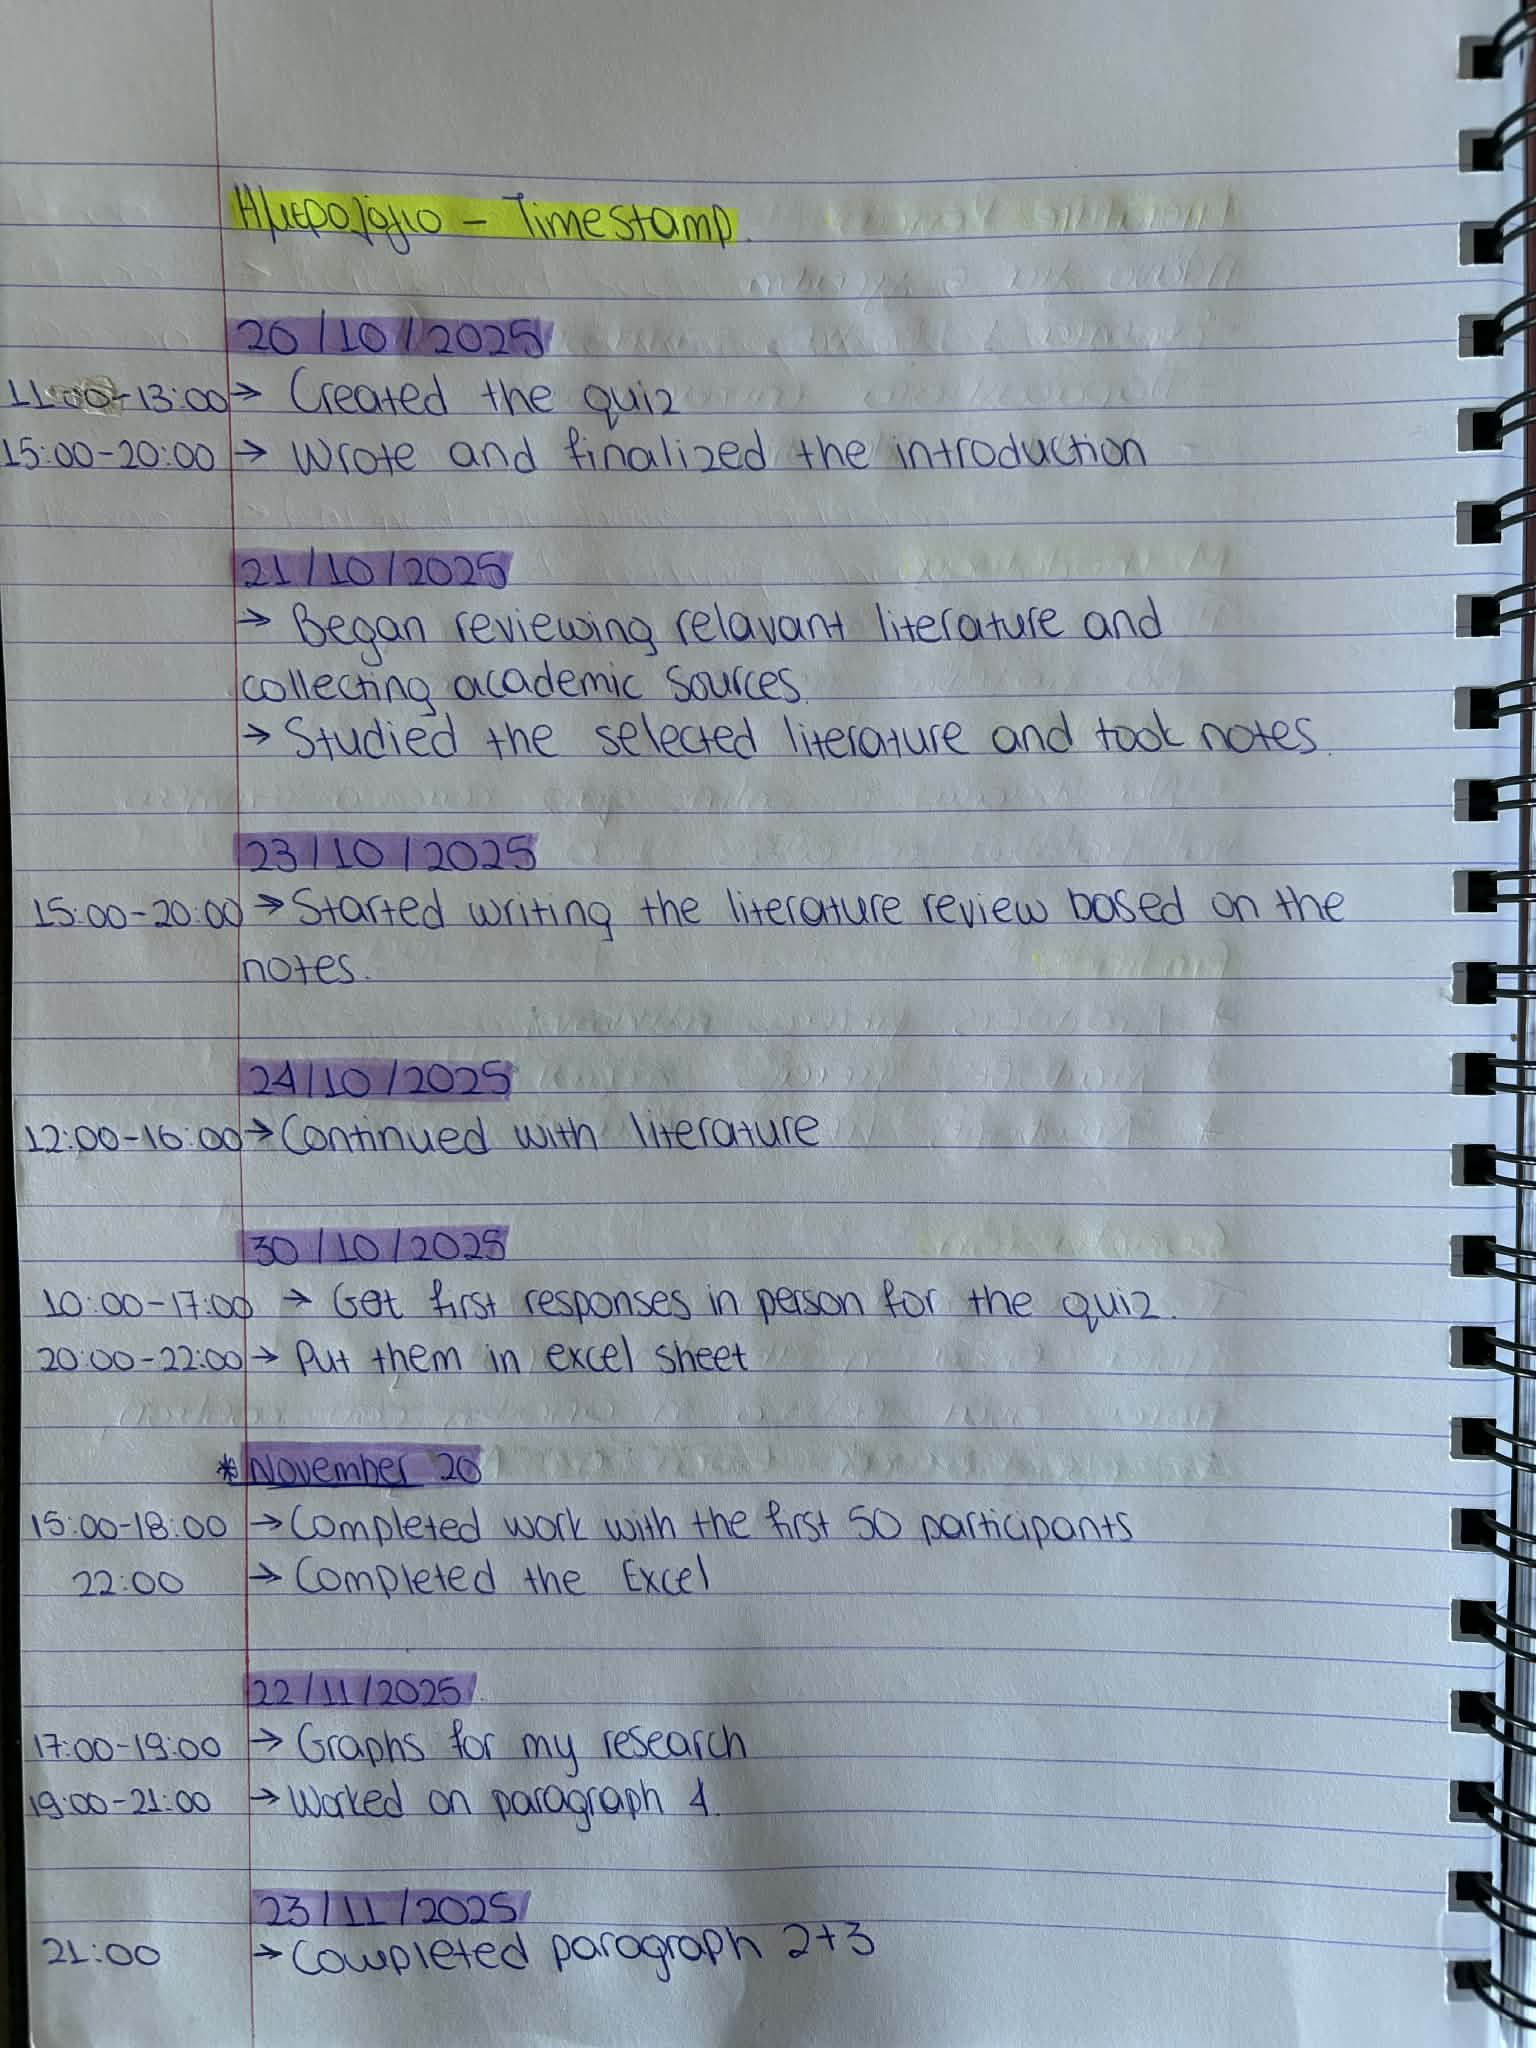 Ημερολόγιο - Timestamp.
20/10/2025
11:00-13:00 → Created the quiz
15:00-20:00 → Wrote and finalized the introduction
21/10/2025
→ Began reviewing relavant literature and
collecting academic sources.
→ Studied the selected literature and took notes.
23/10/2025
15:00-20:00 → Started writing the literature review based on the
notes.
24/10/2025
12:00-16:00 → Continued with literature
30/10/2025
10:00-17:00 → Get first responses in person for the quiz.
20:00-22:00 → Put them in excel sheet
* November 20
15:00-18:00 → Completed work with the first 50 participants
22:00 → Completed the Excel
22/11/2025
17:00-19:00 → Graphs for my research
19:00-21:00 → Worked on paragraph 1.
23/11/2025
21:00 → Completed paragraph 2+3